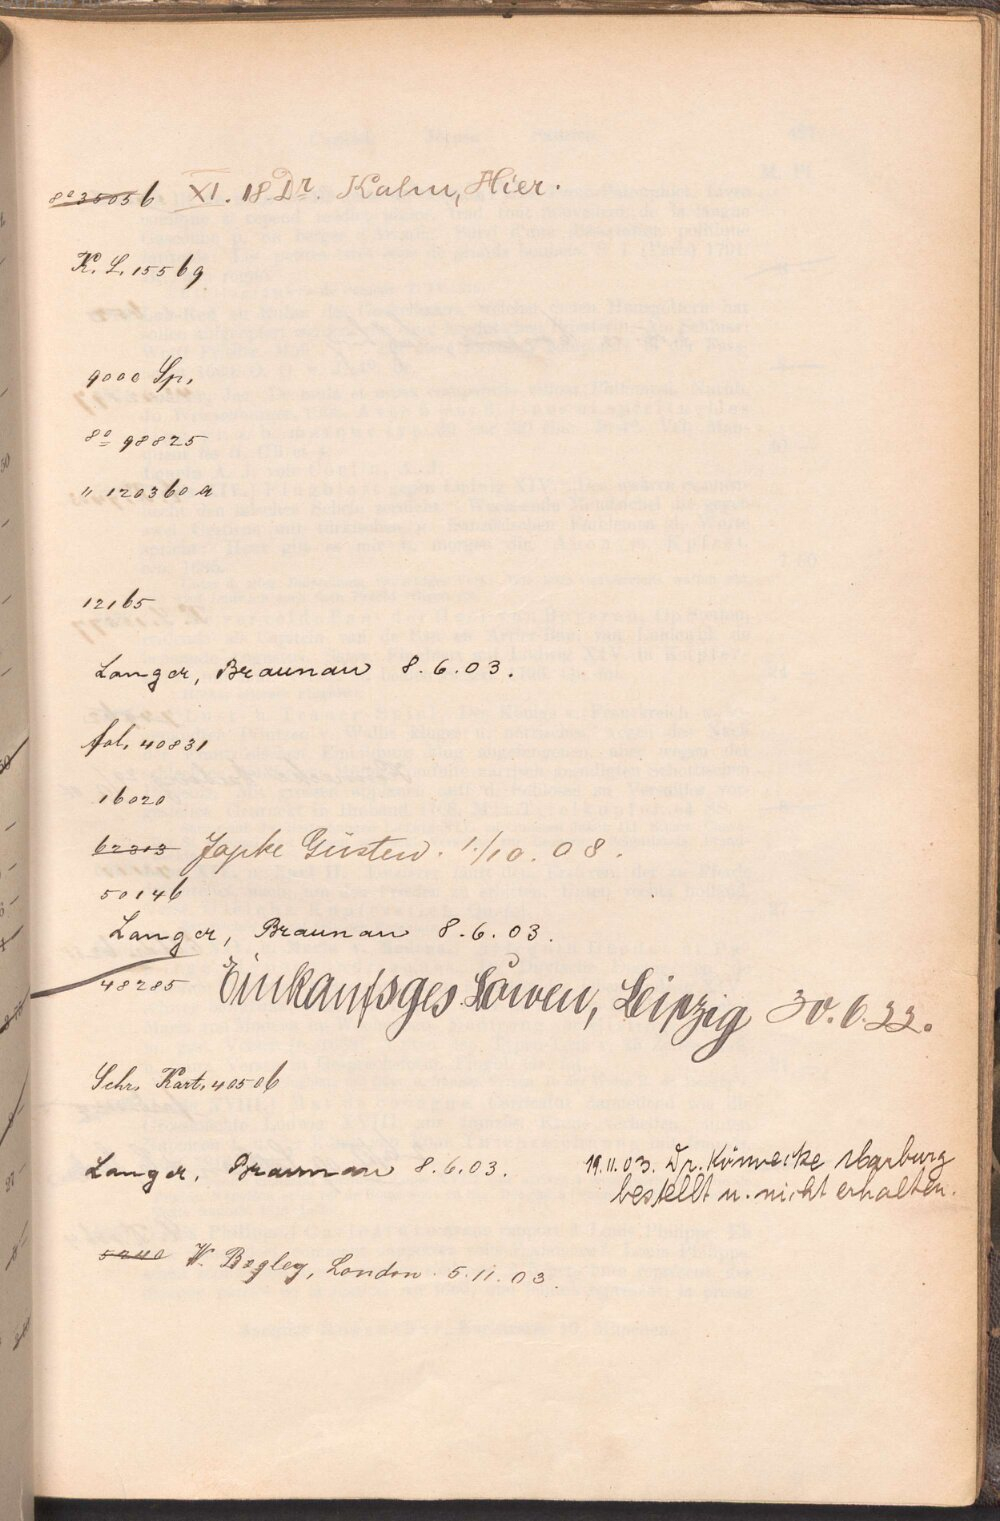 8º 35056 XI. 18 Dr. Kahn, Hier.
K. L. 1556g
9000 Sp.
8º 98825
" 120360 a
12165
Langer, Braunau 8.6.03.
fol. 40831
16020
62303 Japke Güsten. 1/10.08.
50146
Langer, Braunau 8.6.03.
48285 Einkaufsges. Löwen, Leipzig 30.6.22.
Schr. Kart. 40506
Langer, Braunau 8.6.03.
19.11.03. Dr. Könnecke Marburg
bestellt u. nicht erhalten.
5240 W. Bagley, London. 5.11.03.